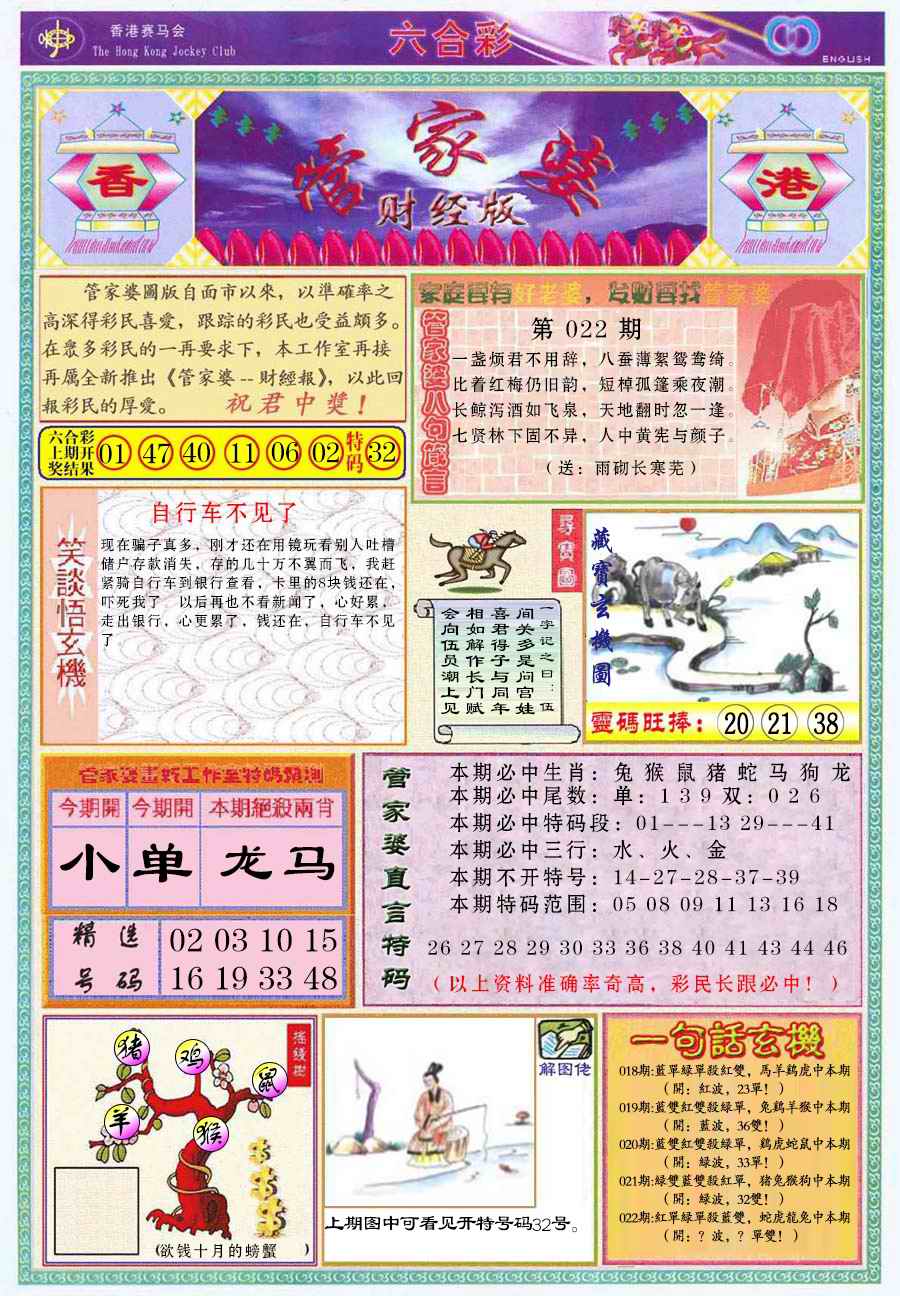 香港赛马会
The Hong Kong Jockey Club
六合彩
ENGLISH
香
管家婆
财经版
港
管家婆圖版自面市以來，以準確率之
高深得彩民喜愛，跟踪的彩民也受益頗多。
在眾多彩民的一再要求下，本工作室再接
再厲全新推出《管家婆--財經報》，以此回
報彩民的厚愛。 祝君中獎！
六合彩
上期开
奖结果
01 47 40 11 06 02 特码 32
家庭要有好老婆，发财要找管家婆
管家婆八句箴言
第 022 期
一盏烦君不用辞，八蚕薄絮鸳鸯绮。
比着红梅仍旧韵，短棹孤篷乘夜潮。
长鲸泻酒如飞泉，天地翻时忽一逢。
七贤林下固不异，人中黄宪与颜子。
（送：雨砌长寒芜）
笑談悟玄機
自行车不见了
现在骗子真多，刚才还在用镜玩看别人吐槽
储户存款消失，存的几十万不翼而飞，我赶
紧骑自行车到银行查看，卡里的8块钱还在，
吓死我了，以后再也不看新闻了，心好累，
走出银行，心更累了，钱还在，自行车不见
了
尋寶圖
一字记之曰：伍
间关多是问宫娃
喜君得子与同年
相如解作长门赋
会向伍员潮上见
藏寶玄機圖
靈碼旺捧： 20 21 38
管家婆畫班工作室特碼預測
今期開 今期開 本期絕殺兩肖
小 单 龙马
精选
号码
02 03 10 15
16 19 33 48
管家婆直言特码
本期必中生肖：兔猴鼠猪蛇马狗龙
本期必中尾数：单：1 3 9 双：0 2 6
本期必中特码段：01---13 29---41
本期必中三行：水、火、金
本期不开特号：14-27-28-37-39
本期特码范围：05 08 09 11 13 16 18
26 27 28 29 30 33 36 38 40 41 43 44 46
（以上资料准确率奇高，彩民长跟必中！）
摇錢樹
猪
鸡
鼠
羊
猴
$
$
$
$
(欲钱十月的螃蟹 )
解图佬
上期图中可看见开特号码32号。
一句話玄機
018期:藍單緑單殺紅雙，馬羊鷄虎中本期
（開：紅波，23單！）
019期:藍雙紅雙殺緑單，兔鷄羊猴中本期
（開：藍波，36雙！）
020期:藍雙紅雙殺緑單，鷄虎蛇鼠中本期
（開：緑波，33單！）
021期:緑雙藍雙殺紅單，猪兔猴狗中本期
（開：緑波，32雙！）
022期:紅單緑單殺藍雙，蛇虎龍兔中本期
（開：？波，？單雙！）